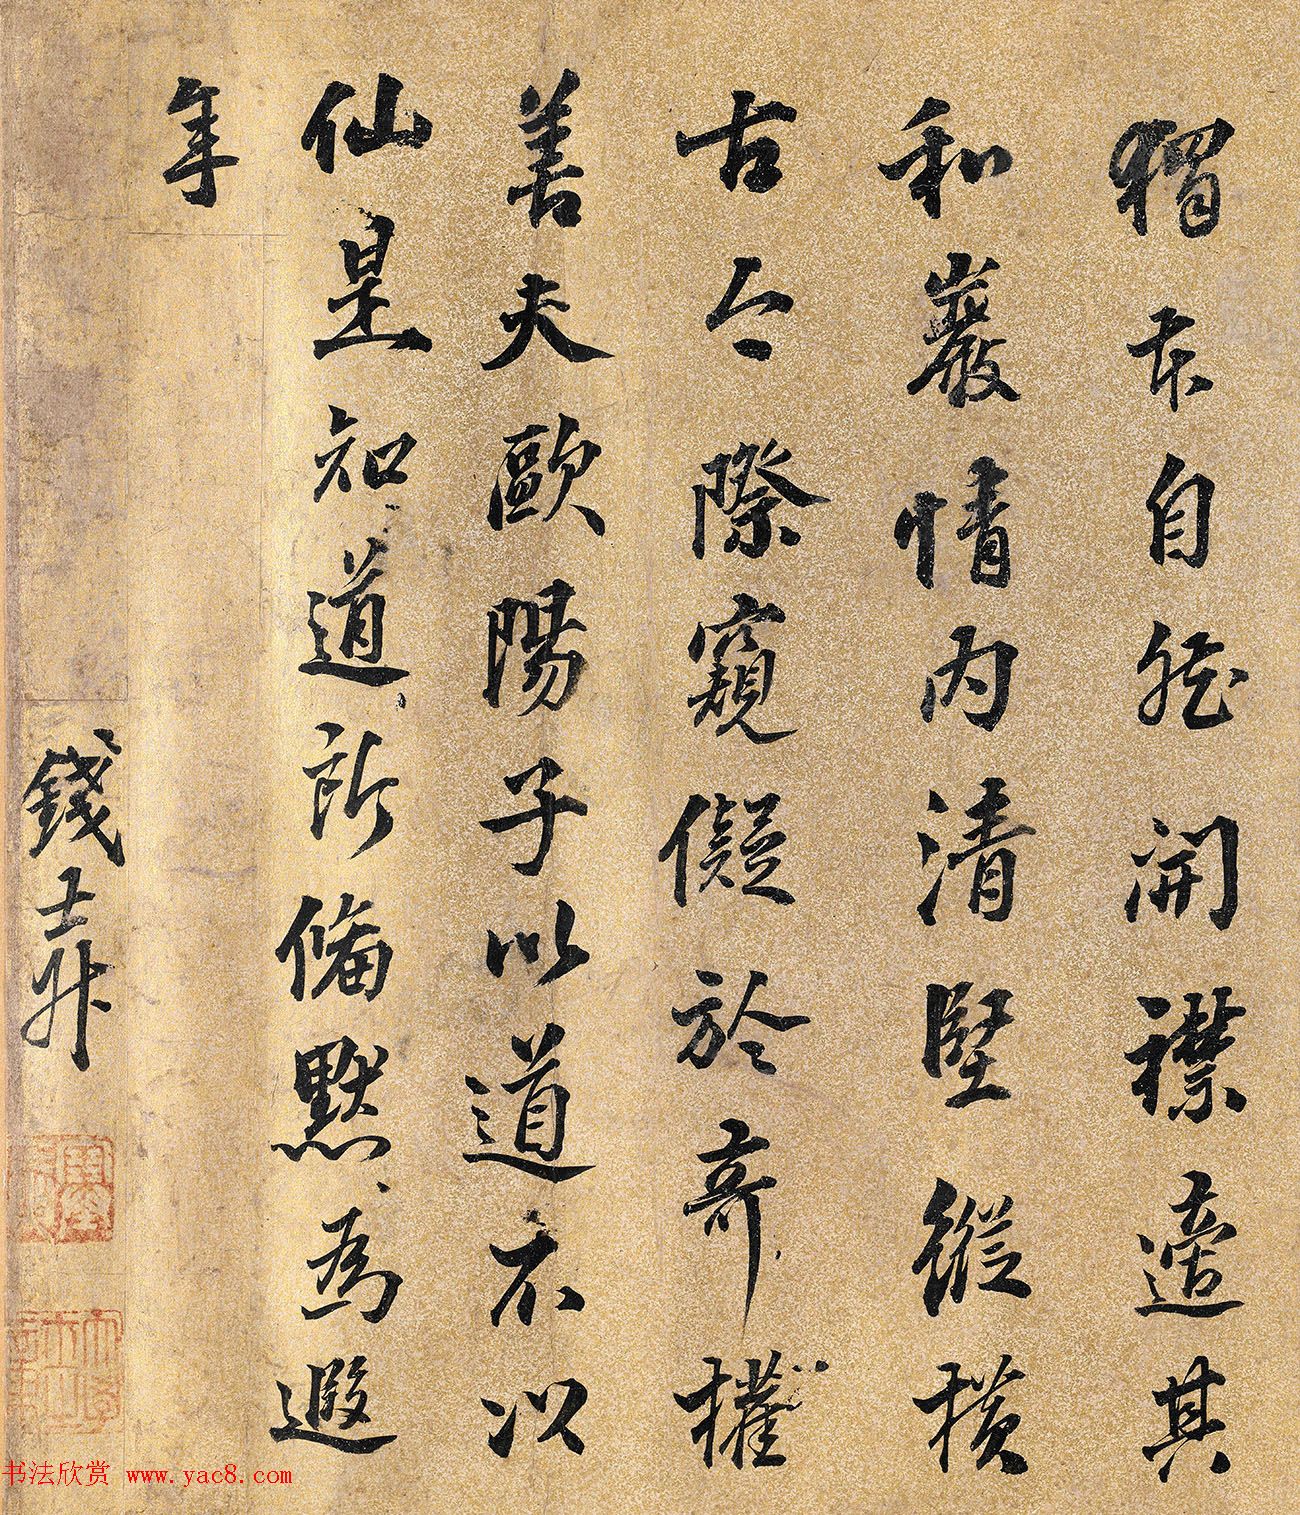 獨本自然開襟適其
和巖情內清堅縱橫
古今際窺儗於奇權
善夫歐陽子以道不以
仙是知道所備默為遐
年
錢士升
书法欣赏 www.yac8.com